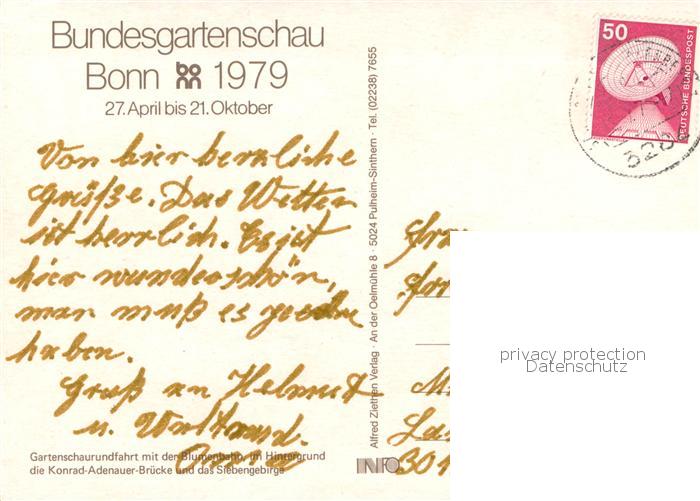 Bundesgartenschau
Bonn 1979
27. April bis 21. Oktober
Von hier herzliche
Grüße. Das Wetter
ist herrlich. Es ist
hier wunderschön,
man muß es gesehen
haben.
Gruß an Helmut
u. Waltraud.
Oma
Gartenschaurundfahrt mit der Blumenbahn, im Hintergrund
die Konrad-Adenauer-Brücke und das Siebengebirge
Alfred Ziethen Verlag · An der Oelmühle 8 · 5024 Pulheim-Sinthern · Tel. (02238) 7655
INFO
50
DEUTSCHE BUNDESPOST
Frau
301
privacy protection
Datenschutz